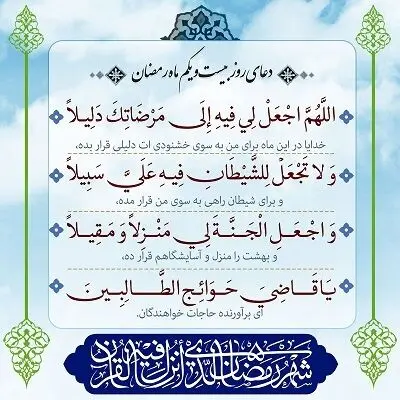 دعای روز بیست و یکم ماه رمضان
اللَّهُمَّ اجْعَلْ لِي فِيهِ إِلَى مَرْضَاتِكَ دَلِيلاً
خدایا در این ماه برای من به سوی خشنودی ات دلیلی قرار بده،
وَ لا تَجْعَلْ لِلشَّيْطَانِ فِيهِ عَلَيَّ سَبِيلاً
و برای شیطان راهی به سوی من قرار مده،
وَ اجْعَلِ الْجَنَّةَ لِي مَنْزِلاً وَ مَقِيلاً
و بهشت را منزل و آسایشگاهم قرار ده،
يَا قَاضِيَ حَوَائِجِ الطَّالِبِينَ
ای برآورنده حاجات خواهندگان.
شَهْرُ رَمَضَانَ الَّذِي أُنْزِلَ فِيهِ الْقُرْآنُ